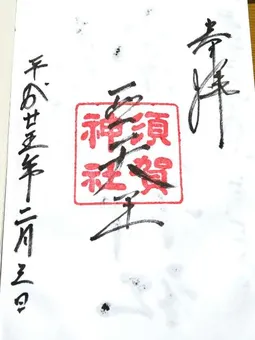 奉拝
天王
須賀
神社
平成廿五年二月三日